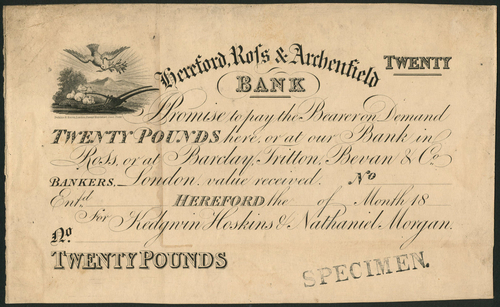 Hereford, Rofs & Archenfield
BANK
TWENTY
Promise to pay the Bearer on Demand
TWENTY POUNDS here, or at our Bank in
Ross, or at Barclay, Tritton, Bevan & Co.
BANKERS, London, value received. No
Ent.d HEREFORD the of Month 18
For Hedgwin Hoskins & Nathaniel Morgan.
No.
TWENTY POUNDS
SPECIMEN.